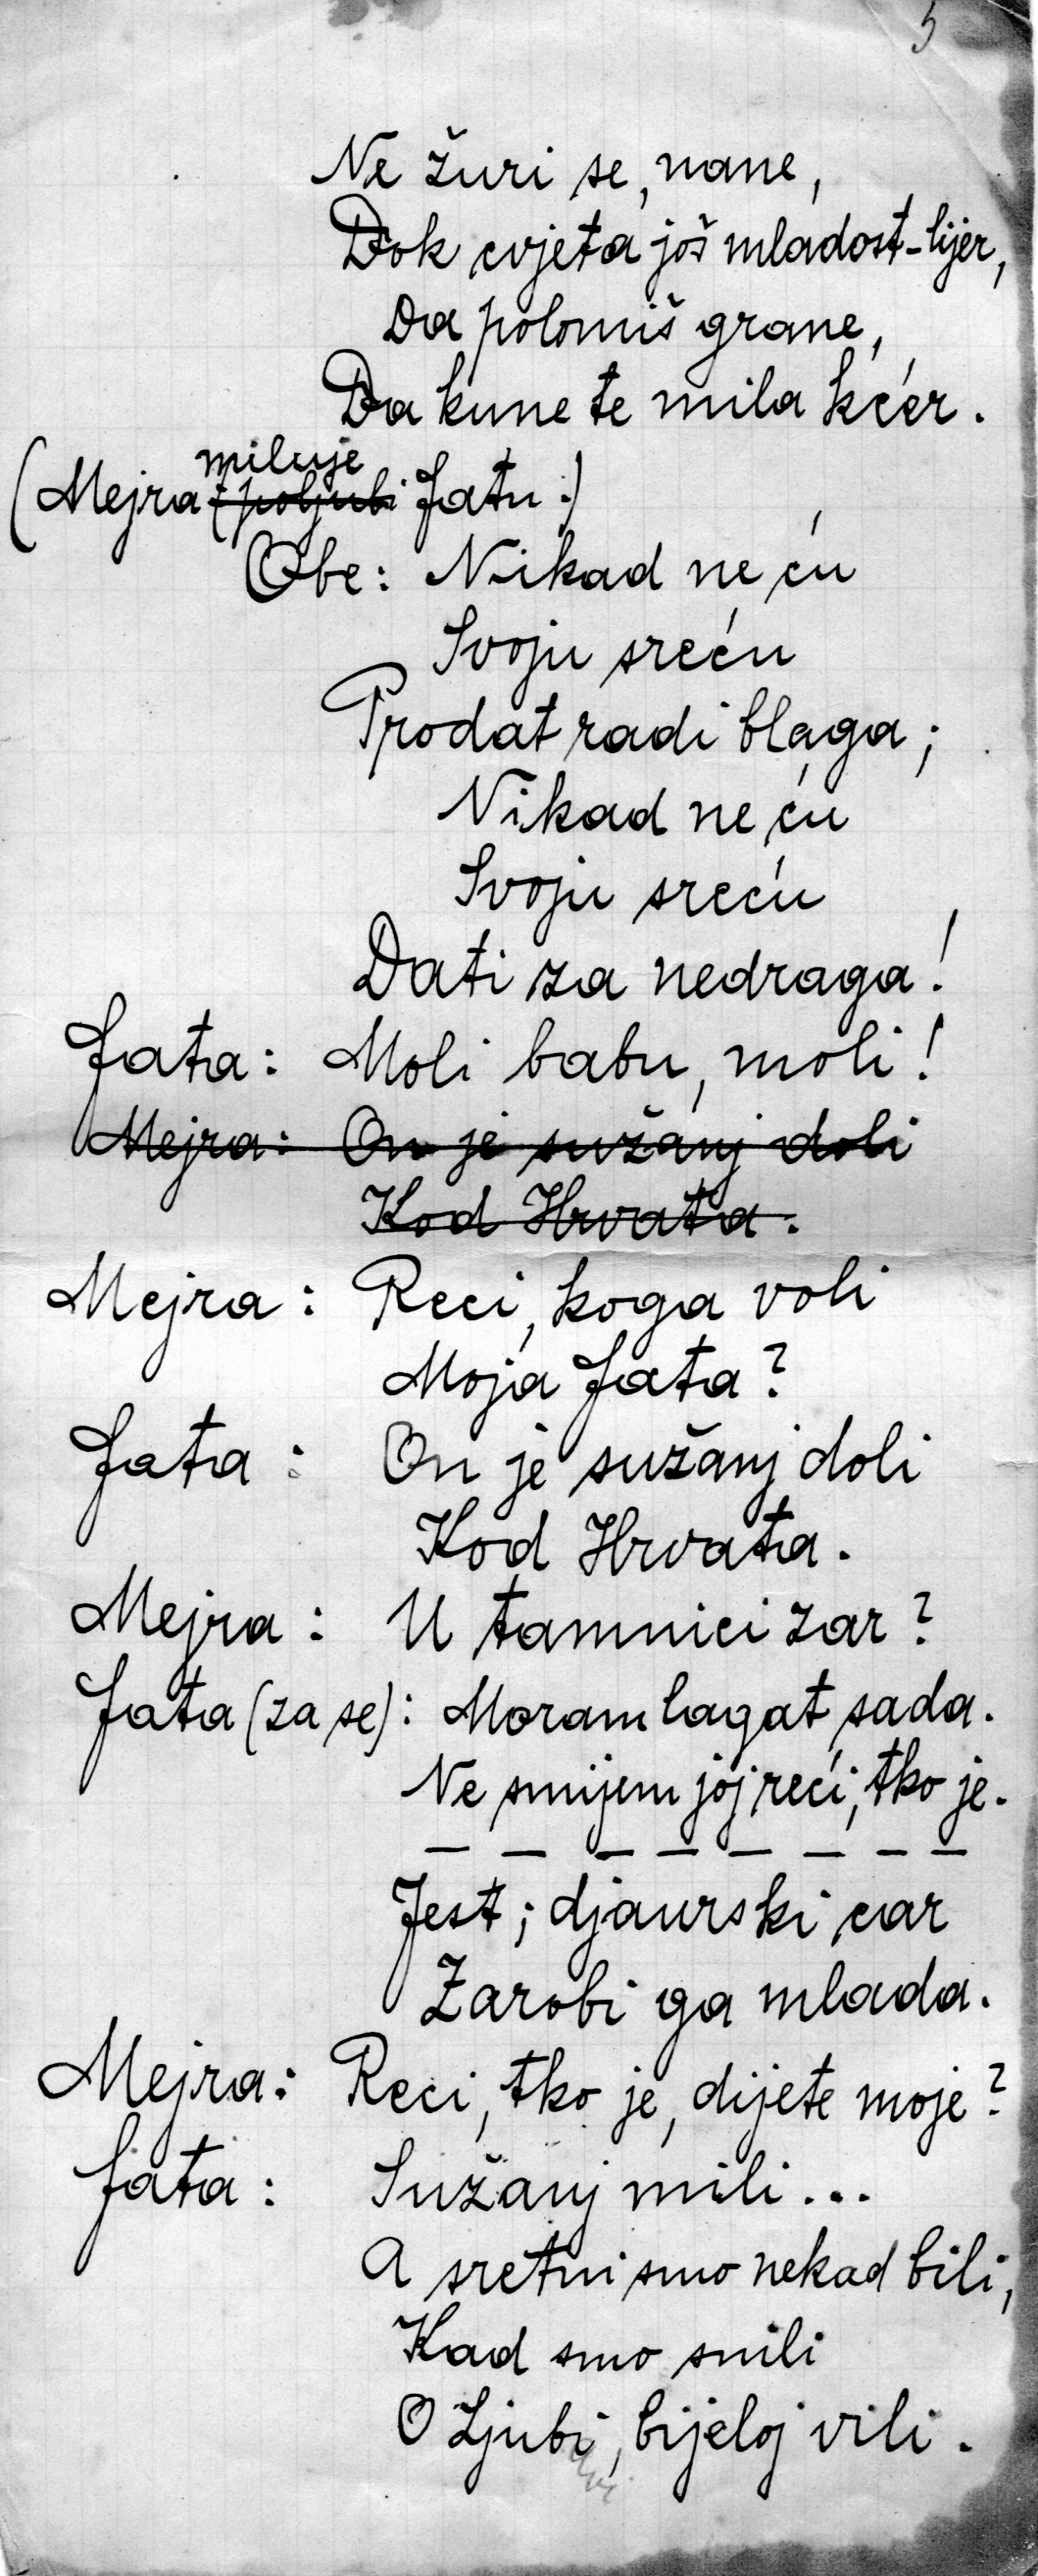 5
Ne žuri se, nane,
Dok cvjeta još mladost-lijer,
Da polomiš grane,
Da kune te mila kćer.
miluje
(Mejra poljubi Fatu.)
Obe: Nikad ne ću
Svoju sreću
Prodat radi blaga;
Nikad ne ću
Svoju sreću
Dati za nedraga!
Fata: Moli babu, moli!
Mejra: On je sužanj doli
Kod Hrvata.
Mejra: Reci, koga voli
Moja Fata?
Fata: On je sužanj doli
Kod Hrvata.
Mejra: U tamnici zar?
Fata (za se): Moram lagat sada.
Ne smijem joj reći, tko je.
— — — — — — — —
Jest; djaurski car
Zarobi ga mlada.
Mejra: Reci, tko je, dijete moje?
Fata: Sužanj mili...
A sretni smo nekad bili,
Kad smo snili
O Ljubi, bijeloj vili.